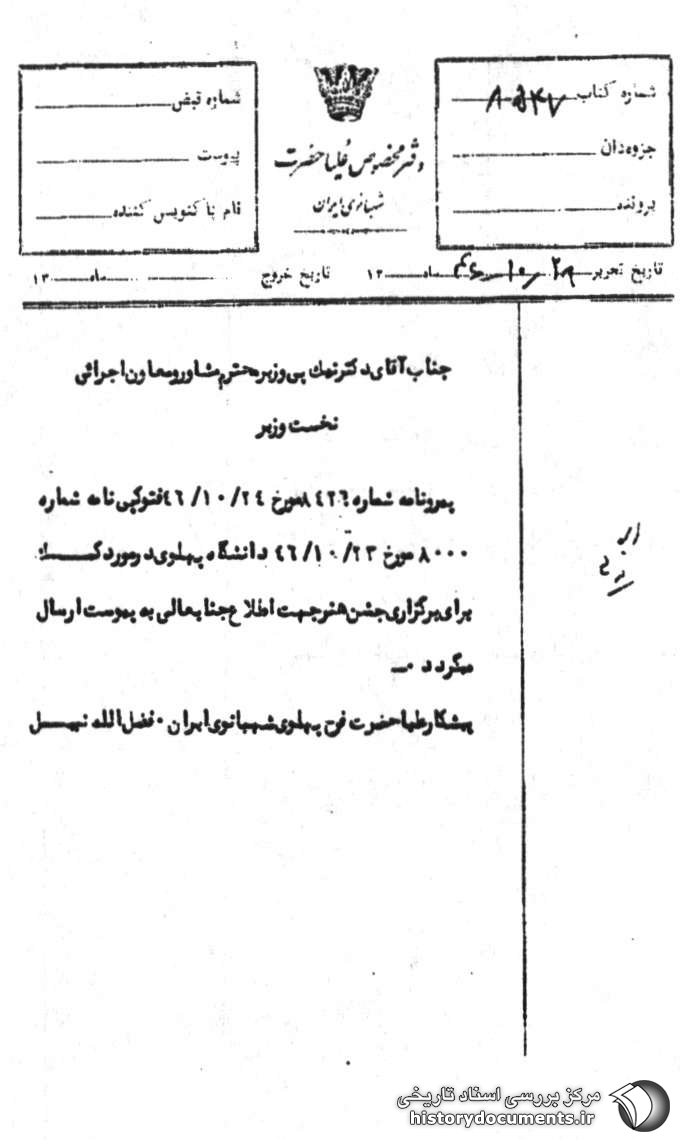 شماره کتاب ۸۵۴۷
جزوه‌دان
پرونده
دفتر مخصوص علیاحضرت
شهبانوی ایران
شماره قبض
پیوست
نام پاکنویس کننده
تاریخ تحریر ۲۹ ۱۰ ۴۶ ماه ۱۳ تاریخ خروج ماه ۱۳
جناب آقای دکتر نهك پی وزیر محترم مشاور و معاون اجرائی
نخست وزیر
پیرو نامه شماره ۸۴۲۶ مورخ ۴۶/۱۰/۲۴ فتوکپی نامه شماره
۸۰۰۰ مورخ ۴۶/۱۰/۲۳ دانشگاه پهلوی در مورد کمك
برای برگزاری جشن هنر جهت اطلاع جنابعالی به پیوست ارسال
میگردد ۰ــ
پیشکار علیاحضرت فرح پهلوی شهبانوی ایران ۰ فضل الله نبیل
مرکز بررسی اسناد تاریخی
historydocuments.ir